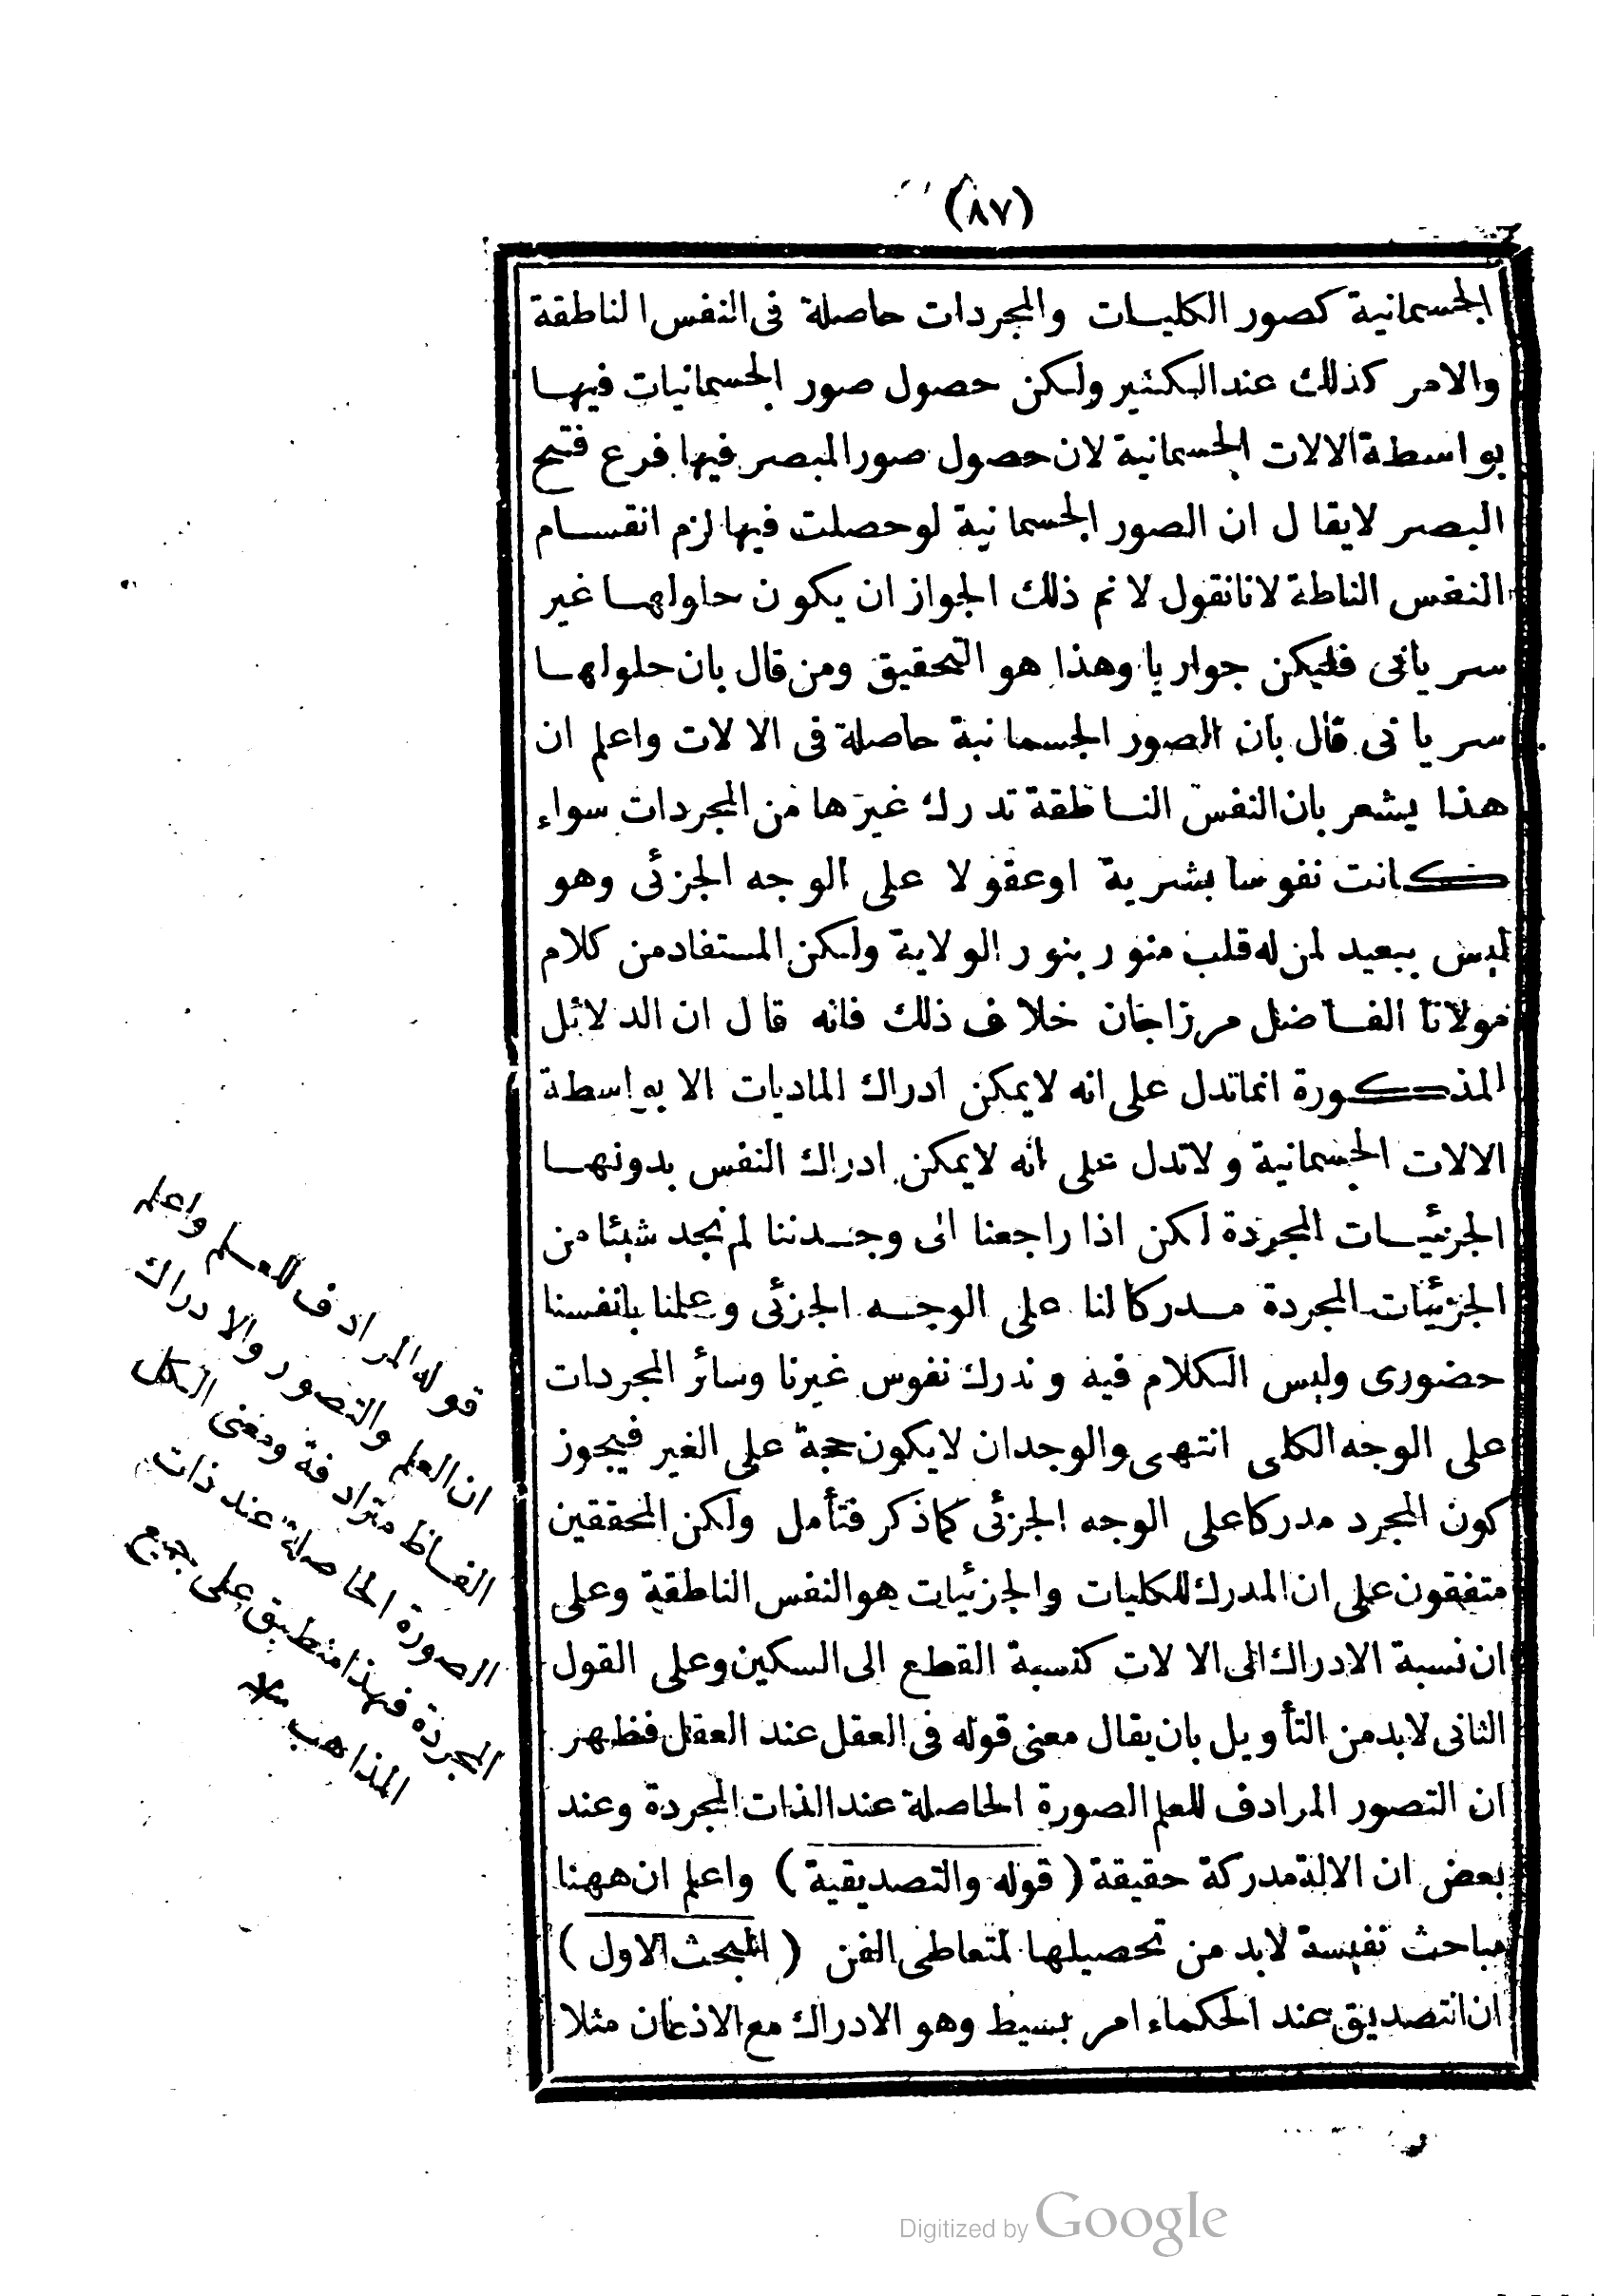 (٨٧)
الجسمانية كصور الكليات والمجردات حاصلة فى النفس الناطقة
والامر كذلك عند الكثير ولكن حصول صور الجسمانيات فيها
بواسطة الالات الجسمانية لان حصول صور المبصر فيها فرع فتح
البصر لايقال ان الصور الجسمانية لوحصلت فيها لزم انقسام
النفس الناطقة لانانقول لا نم ذلك الجواز ان يكون حلولها غير
سريانى فليكن جواريا وهذا هو التحقيق ومن قال بان حلولها
سريانى قال بان الصور الجسمانية حاصلة فى الالات واعلم ان
هذا يشعر بان النفس الناطقة تدرك غيرها من المجردات سواء
كانت نفوسا بشرية اوعقولا على الوجه الجزئى وهو
ليس ببعيد لمن له قلب منور بنور الولاية ولكن المستفاد من كلام
مولانا الفاضل مرزاجان خلاف ذلك فانه قال ان الدلائل
المذكورة انماتدل على انه لايمكن ادراك الماديات الا بواسطة
الالات الجسمانية ولاتدل على انه لايمكن ادراك النفس بدونها
الجزئيات المجردة لكن اذا راجعنا الى وجدننا لم نجد شيئا من
الجزئيات المجردة مدركا لنا على الوجه الجزئى وعلمنا بانفسنا
حضورى وليس الكلام فيه وندرك نفوس غيرنا وسائر المجردات
على الوجه الكلى انتهى والوجدان لايكون حجة على الغير فيجوز
كون المجرد مدركا على الوجه الجزئى كماذكر فتأمل ولكن المحققين
متفقون على ان المدرك للكليات والجزئيات هو النفس الناطقة وعلى
ان نسبة الادراك الى الالات كنسبة القطع الى السكين وعلى القول
الثانى لابد من التأويل بان يقال معنى قوله فى العقل عند العقل فظهر
ان التصور المرادف للعلم الصورة الحاصلة عند الذات المجردة وعند
بعض ان الالة مدركة حقيقة (قوله والتصديقية) واعلم ان ههنا
مباحث نفيسة لابد من تحصيلها لمتعاطى الفن (المبحث الاول)
ان التصديق عند الحكماء امر بسيط وهو الادراك مع الاذعان مثلا
قوله المرادف للعلم واعلم
ان العلم والتصور والادراك
الفاظ مترادفة ومعنى الكل
الصورة الحاصلة عند ذات
المجردة فهذا منطبق على جميع
المذاهب *
Digitized by Google